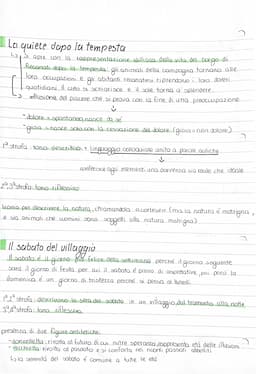 La quiete dopo la tempesta
↳ si apre con la rappresentazione idilliaca della vita del borgo di
Recanati dopo la tempesta: gli animali della campagna tornano alle
loro occupazioni e gli abitanti recanatesi riprendono i loro doveri
quotidiani. Il cielo si schiarisce e il sole torna a splendere.
→ riflessione del piacere che si prova con la fine di una preoccupazione
• "dolore" = spontaneo, nasce da sé
• "gioia" = nasce solo con la cessazione del dolore (gioia = non dolore)
1ª strofa: tono descrittivo + linguaggio colloquiale unito a parole auliche
conferisce agli elementi una parvenza sia reale che ideale
2ª 3ª strofa: tono riflessivo
Ironia per descrivere la natura, chiamandola "cortese" (ma la natura è matrigna,
e sia animali che uomini sono soggetti alla natura matrigna)
Il sabato del villaggio
Il sabato è il giorno più felice della settimana perché il giorno seguente
sarà il giorno di festa per cui il sabato è pieno di aspettative, poi però la
domenica è un giorno di tristezza perché si pensa al lunedì.
1ª 2ª strofa: descrivono la sera del sabato in un villaggio dal tramonto alla notte
3ª 4ª strofa: tono riflessivo
presenza di due figure antitetiche:
- donzelletta: rivolta al futuro di cui nutre speranza, rappresenta età delle illusioni
- vecchietta: rivolta al passato e si conforta nei propri passati
↳ la serenità del sabato è comune a tutte le età